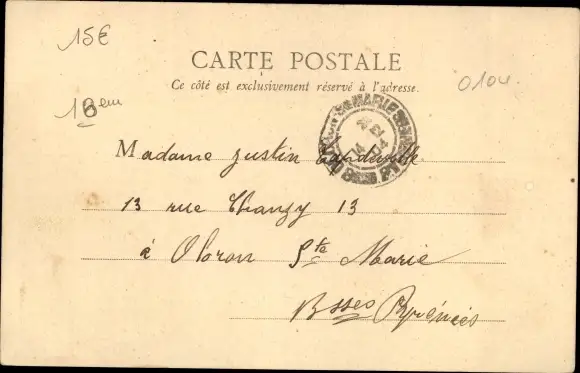 15€
CARTE POSTALE
Ce côté est exclusivement réservé à l'adresse.
0104
18em
Madame Justin
13 rue Chanzy 13
à Oloron Ste Marie
Bsses Pyrénées